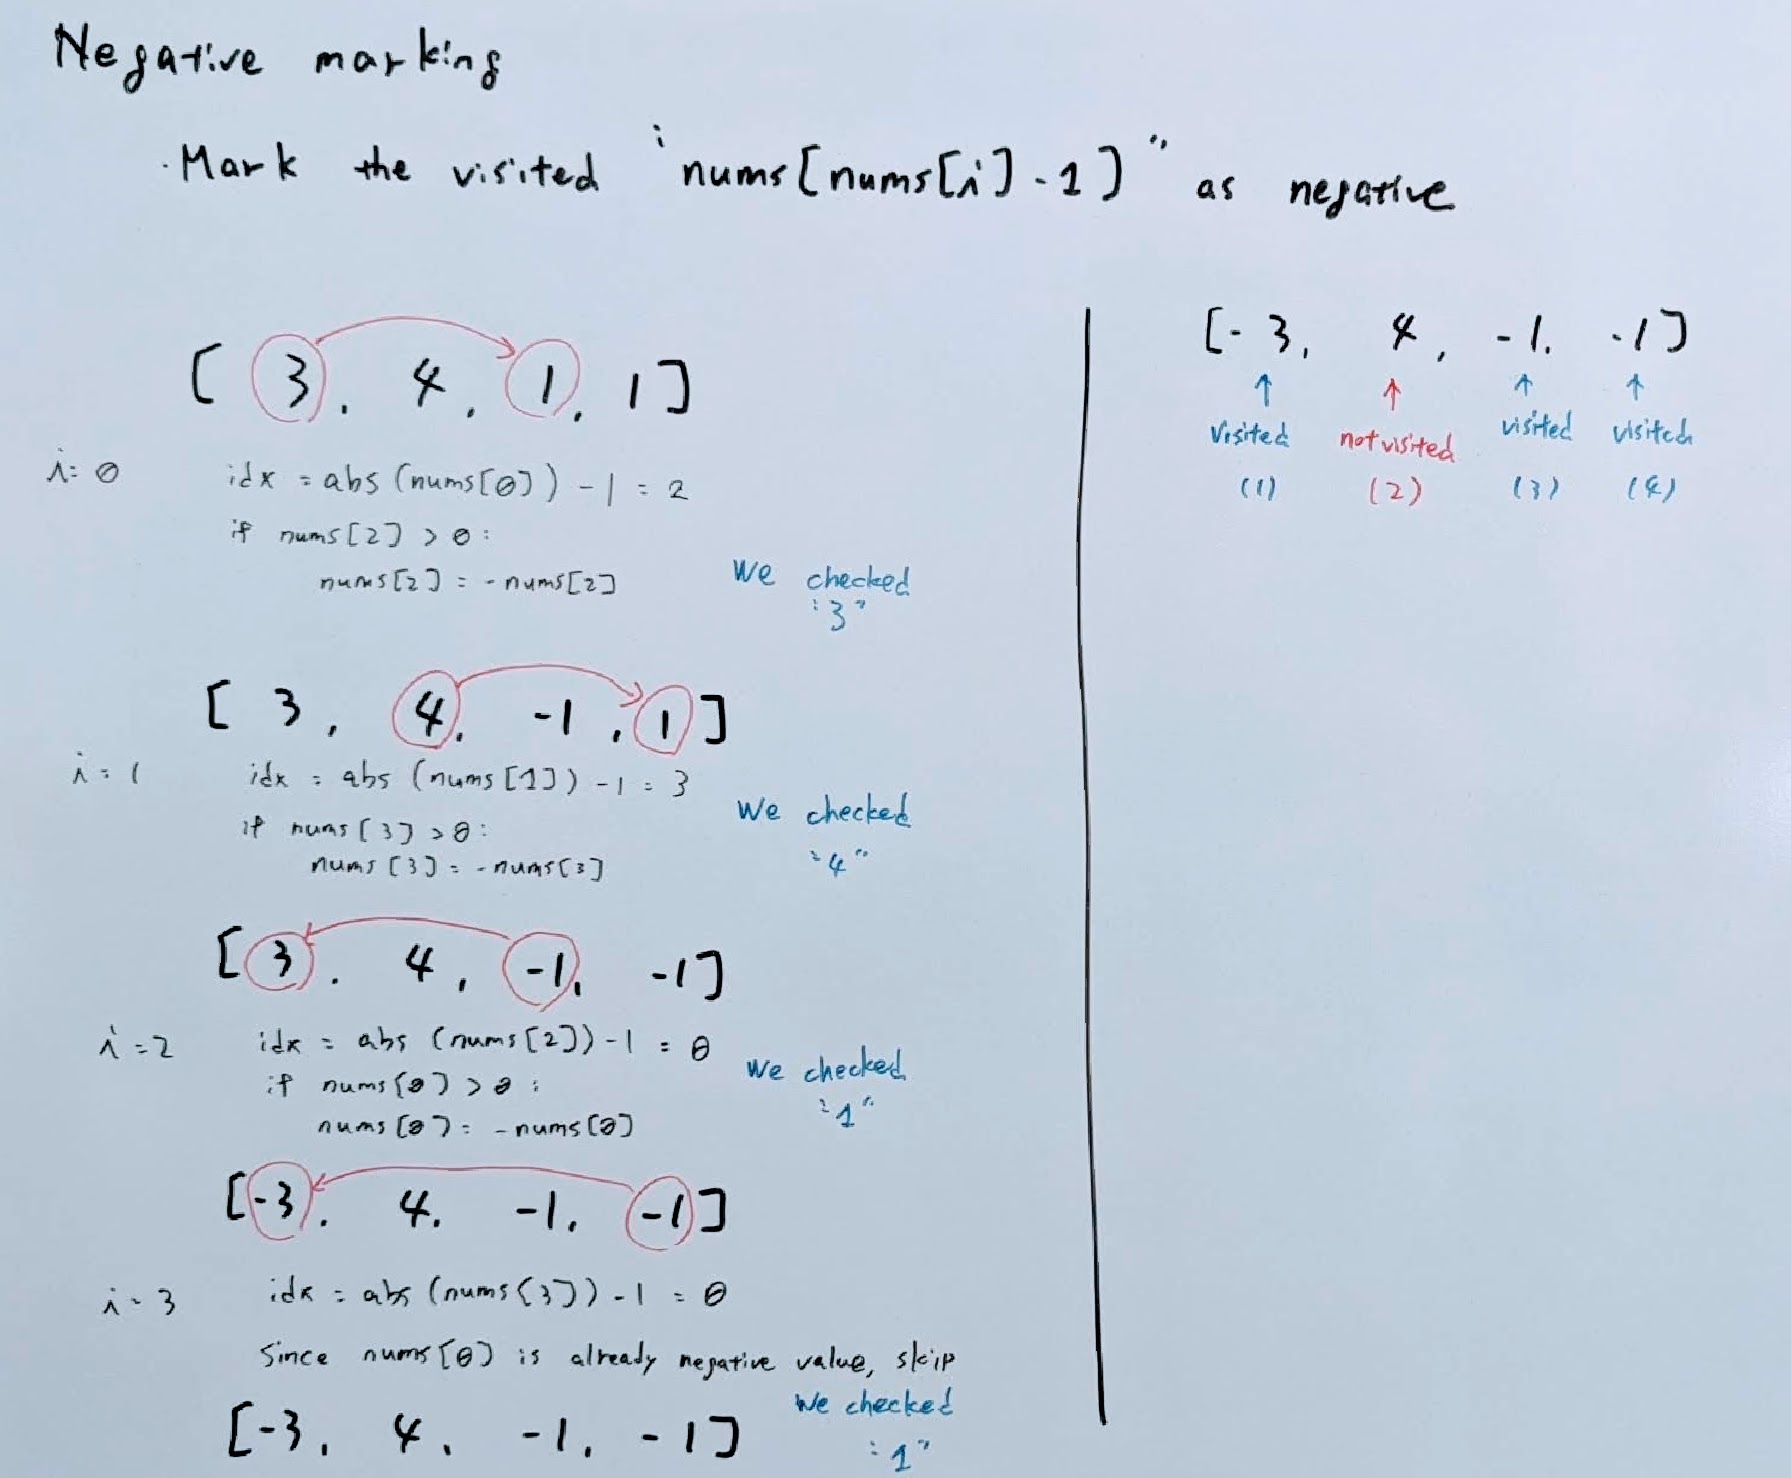 Negative marking
· Mark the visited "nums[nums[i]-1]" as negative
[ 3, 4, 1, 1]
i=0
idx = abs (nums[0]) - 1 = 2
if nums[2] > 0:
nums[2] = -nums[2]
We checked
"3"
[ 3, 4, -1, 1]
i=1
idx = abs (nums[1]) - 1 = 3
if nums[3] > 0:
nums[3] = -nums[3]
We checked
"4"
[3, 4, -1, -1]
i=2
idx = abs (nums[2]) - 1 = 0
if nums[0] > 0:
nums[0] = -nums[0]
We checked
"1"
[-3, 4, -1, -1]
i=3
idx = abs (nums[3]) - 1 = 0
Since nums[0] is already negative value, skip
We checked
"1"
[-3, 4, -1, -1]
[-3, 4, -1, -1]
Visited not visited visited visited
(1) (2) (3) (4)